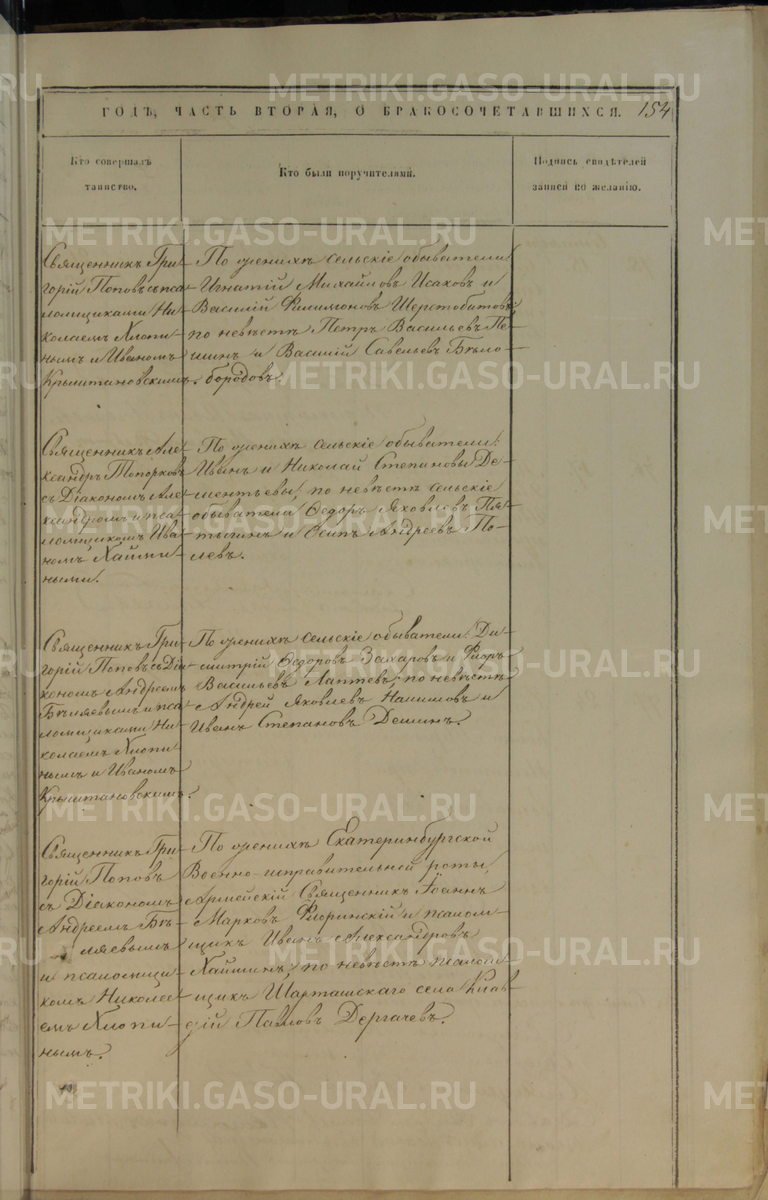 ГОДЪ, ЧАСТЬ ВТОРАЯ, О БРАКОСОЧЕТАВШИХСЯ. 154
Кто совершалъ
таинство.
Кто были поручителями.
Подпись свидѣтелей
записи по желанію.
Священникъ Гри-
горій Поповъ съ пса-
ломщиками Ни-
колаемъ Хлопи-
нымъ и Иваномъ
Крыштановскимъ.
По женихѣ сельскіе обыватели:
Игнатій Михайловъ Исаковъ и
Василій Филимоновъ Шерстобитовъ;
по невѣстѣ Петръ Васильевъ Пе-
шинъ и Василій Савельевъ Бѣло-
бородовъ.
Священникъ Але-
ксандръ Топорковъ
съ Діакономъ Але-
ксандромъ и пса-
ломщикомъ Ива-
номъ Хайми-
ными.
По женихѣ сельскіе обыватели:
Иванъ и Николай Степановы Де-
ментьевы; по невѣстѣ сельскіе
обыватели Ѳедоръ Яковлевъ Пя-
тыгинъ и Осипъ Андреевъ По-
левъ.
Священникъ Гри-
горій Поповъ съ Діа-
кономъ Андреемъ
Бѣляевымъ и пса-
ломщиками Ни-
колаемъ Хлопи-
нымъ и Иваномъ
Крыштановскимъ.
По женихѣ сельскіе обыватели: Ди-
митрій Ѳедоровъ Захаровъ и Флоръ
Васильевъ Лаптевъ; по невѣстѣ
Андрей Яковлевъ и
Иванъ Степановъ Деминъ.
Священникъ Гри-
горій Поповъ
съ Діакономъ
Андреемъ Бѣ-
ляевымъ
и псаломщи-
комъ Никола-
емъ Хлопи-
нымъ.
По женихѣ Екатеринбургской
Военно-исправительной роты,
Армейскій Священникъ Іоаннъ
Марковъ Флоринскій и псалом-
щикъ Иванъ Александровъ
Хайминъ; по невѣстѣ псалом-
щикъ Шарташскаго села Клав-
дій Павловъ Дергачевъ.
METRIKI.GASO-URAL.RU